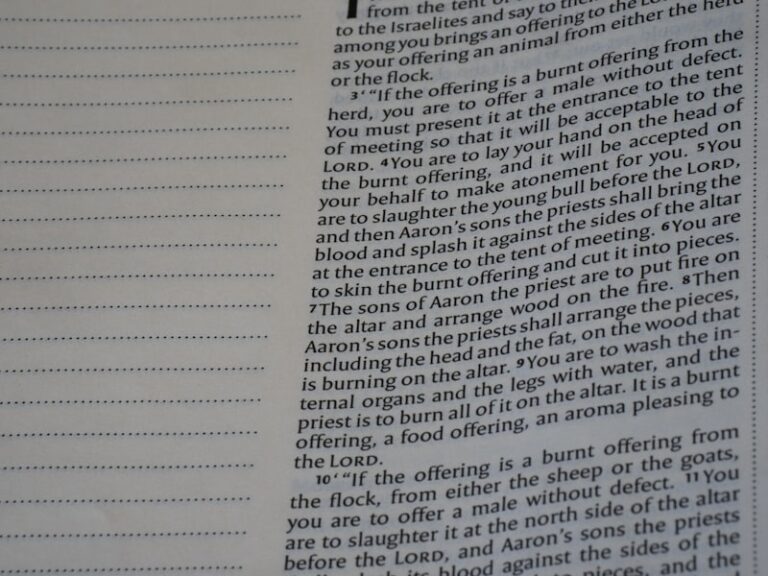 from the tent of
to the Israelites and say to them
among you brings an offering to the
as your offering an animal from either the herd
or the flock.
3‘ “If the offering is a burnt offering from the
herd, you are to offer a male without defect.
You must present it at the entrance to the tent
of meeting so that it will be acceptable to the
LORD. 4You are to lay your hand on the head of
the burnt offering, and it will be accepted on
your behalf to make atonement for you. 5You
are to slaughter the young bull before the LORD,
and then Aaron’s sons the priests shall bring the
blood and splash it against the sides of the altar
at the entrance to the tent of meeting. 6You are
to skin the burnt offering and cut it into pieces.
7The sons of Aaron the priest are to put fire on
the altar and arrange wood on the fire. 8Then
Aaron’s sons the priests shall arrange the pieces,
including the head and the fat, on the wood that
is burning on the altar. 9You are to wash the in-
ternal organs and the legs with water, and the
priest is to burn all of it on the altar. It is a burnt
offering, a food offering, an aroma pleasing to
the LORD.
10‘ “If the offering is a burnt offering from
the flock, from either the sheep or the goats,
you are to offer a male without defect. 11You
are to slaughter it at the north side of the altar
before the LORD, and Aaron’s sons the priests
its blood against the sides of the
pieces, and the